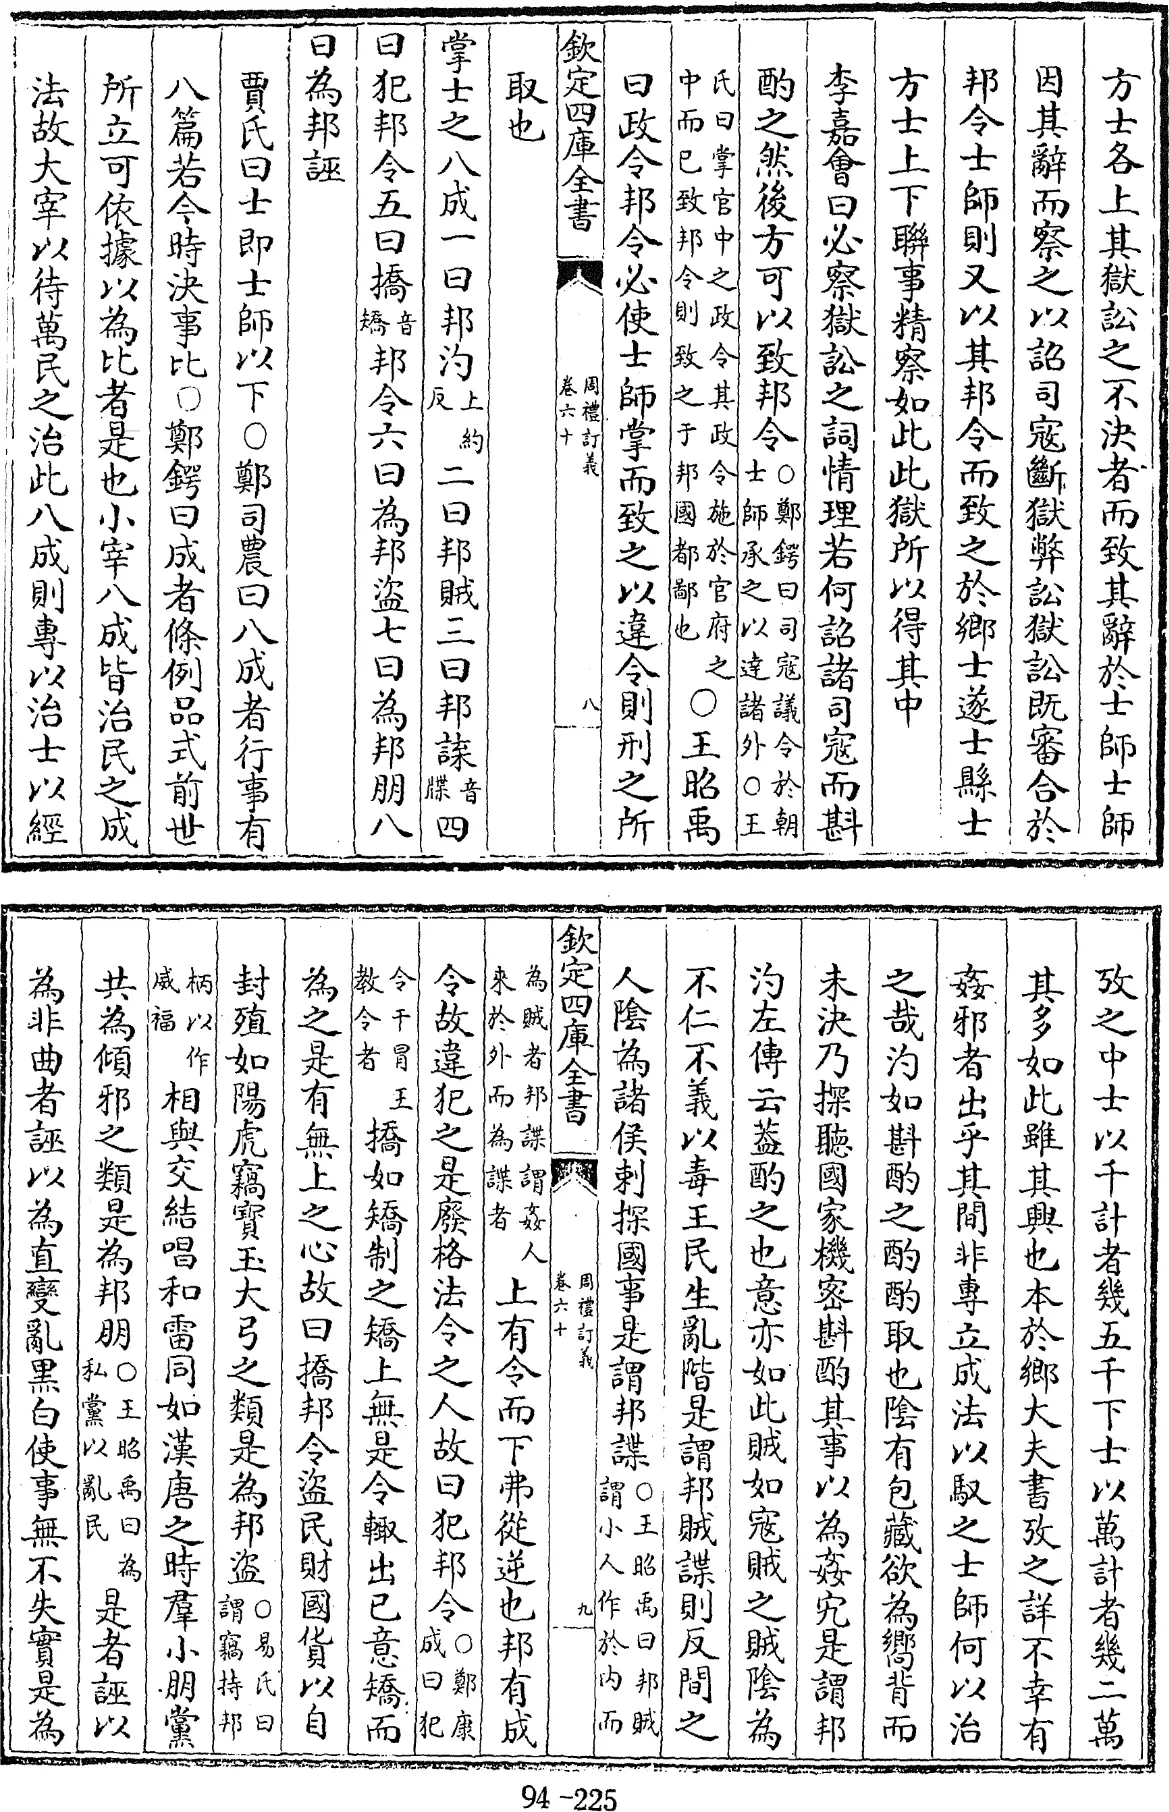 方士各上其獄訟之不決者而致其辭於士師士師
因其辭而察之以詔司寇斷獄弊訟獄訟既審合於
邦令士師則又以其邦令而致之於鄉士遂士縣士
方士上下聯事精察如此此獄所以得其中
李嘉會曰必察獄訟之詞情理若何詔諸司寇而斟
酌之然後方可以致邦令○鄭鍔曰司寇議令於朝士師承之以達諸外○王
氏曰掌官中之政令其政令施於官府之中而已致邦令則致之于邦國都鄙也○王昭禹
曰政令邦令必使士師掌而致之以違令則刑之所
欽定四庫全書 周禮訂義 卷六十 八
取也
掌士之八成一曰邦汋上約反二曰邦賊三曰邦諜音牒四
曰犯邦令五曰撟音矯邦令六曰為邦盜七曰為邦朋八
曰為邦誣
賈氏曰士即士師以下○鄭司農曰八成者行事有
八篇若今時決事比○鄭鍔曰成者條例品式前世
所立可依據以為比者是也小宰八成皆治民之成
法故大宰以待萬民之治此八成則專以治士以經
攷之中士以千計者幾五千下士以萬計者幾二萬
其多如此雖其興也本於鄉大夫書攷之詳不幸有
姦邪者出乎其間非專立成法以馭之士師何以治
之哉汋如斟酌之酌酌取也陰有包藏欲為嚮背而
未決乃探聽國家機密斟酌其事以為姦宄是謂邦
汋左傳云蓋酌之也意亦如此賊如寇賊之賊陰為
不仁不義以毒王民生亂階是謂邦賊諜則反間之
人陰為諸侯刺探國事是謂邦諜○王昭禹曰邦賊謂小人作於內而
欽定四庫全書 周禮訂義 卷六十 九
為賊者邦諜謂姦人來於外而為諜者上有令而下弗從逆也邦有成
令故違犯之是廢格法令之人故曰犯邦令○鄭康成曰犯
令干冒王教令者撟如矯制之矯上無是令輙出已意矯而
為之是有無上之心故曰撟邦令盜民財國貨以自
封殖如陽虎竊寶玉大弓之類是為邦盜○易氏曰謂竊持邦
柄以作威福相與交結唱和雷同如漢唐之時羣小朋黨
共為傾邪之類是為邦朋○王昭禹曰為私黨以亂民是者誣以
為非曲者誣以為直變亂黑白使事無不失實是為
94-225